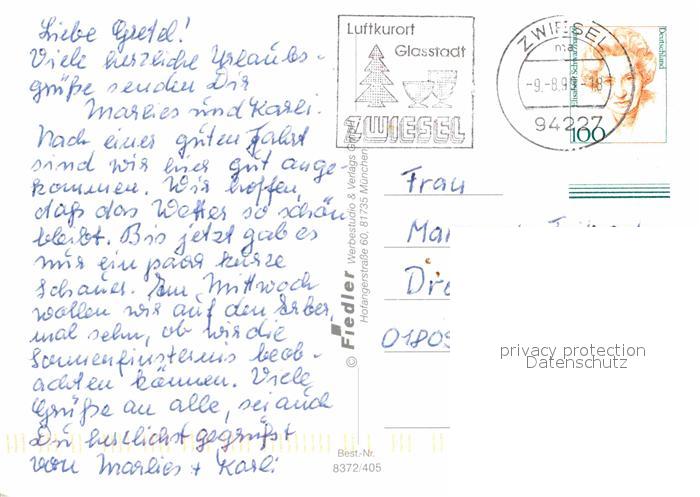 Liebe Gretel!
Viele herzliche Urlaubs-
grüße senden Dir
Marlies und Karli.
Nach einer guten Fahrt
sind wir hier gut ange-
kommen. Wir hoffen,
daß das Wetter so schön
bleibt. Bis jetzt gab es
nur ein paar kurze
Schauer. Am Mittwoch
wollen wir auf den Arber,
mal sehn, ob wir die
Sonnenfinsternis beob-
achten können. Viele
Grüße an alle, sei auch
Du herzlichst gegrüßt
von Marlies + Karli
Luftkurort
Glasstadt
ZWIESEL
ZWIESEL
94227
Deutschland
100
Frau
Mar
Dre
01809
© Fiedler Werbestudio & Verlags GmbH
Hofangerstraße 60, 81735 München
Best.-Nr.
8372/405
privacy protection
Datenschutz